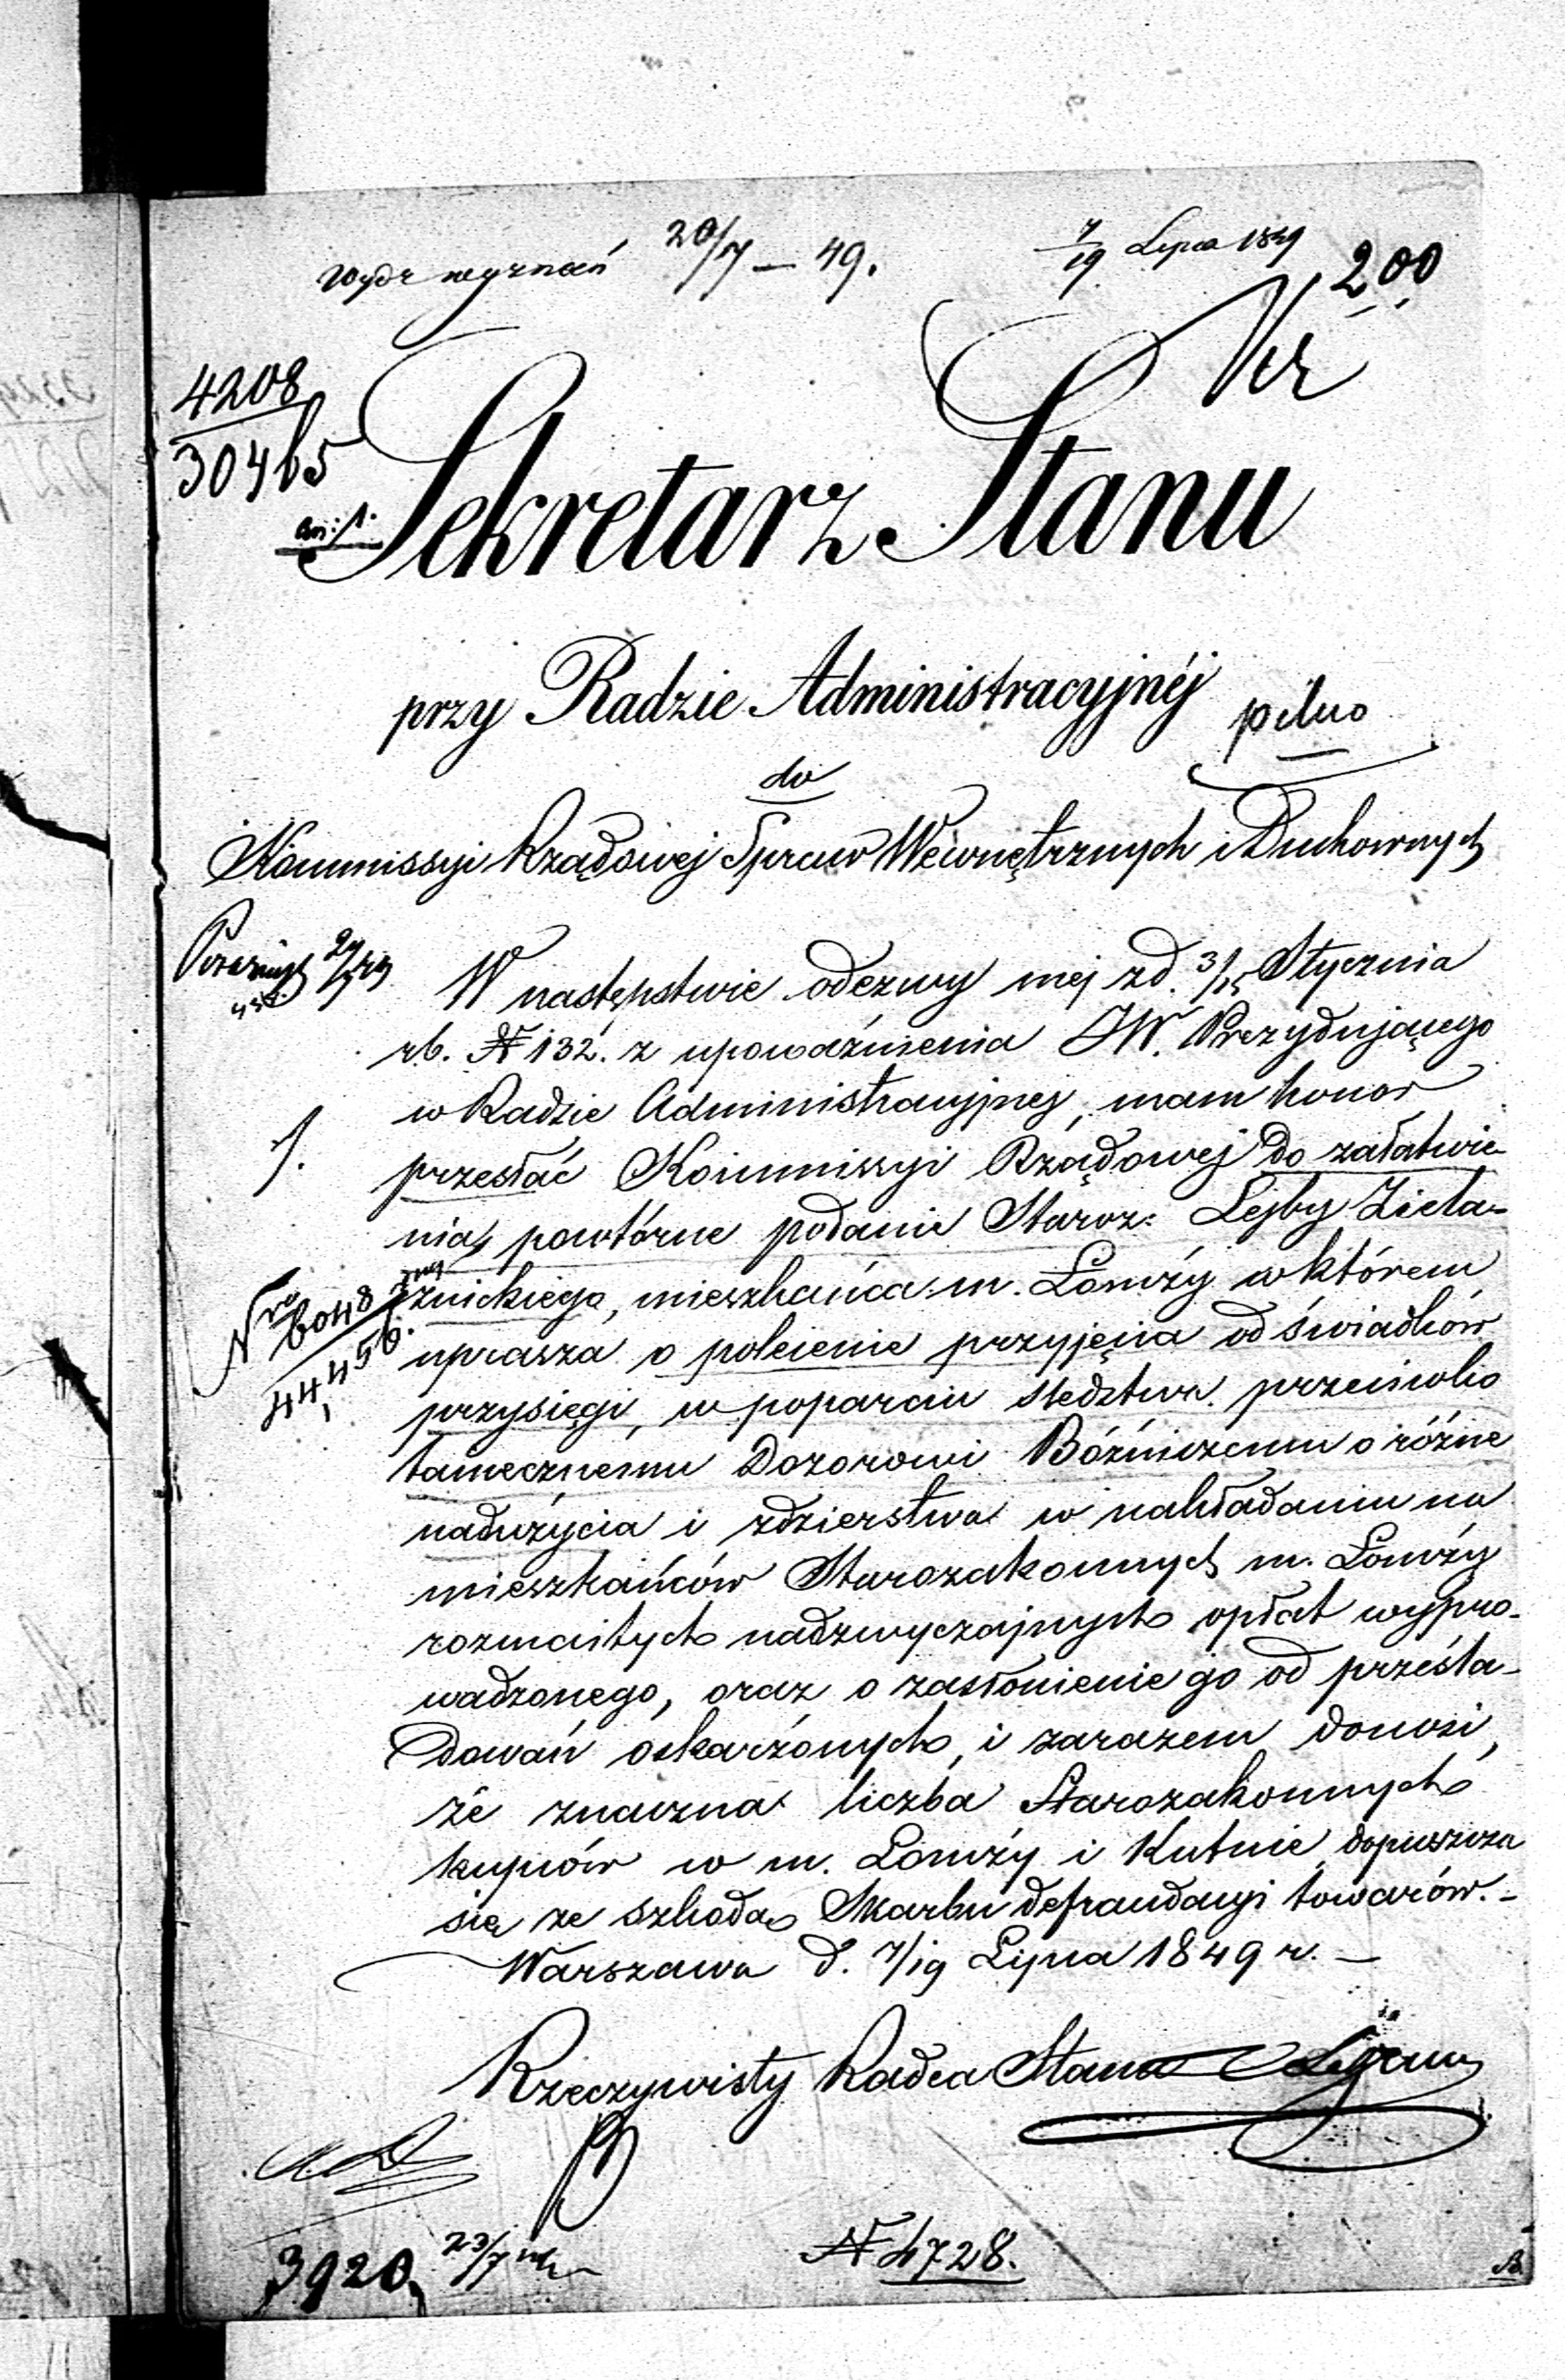 Wydz wyznań 20/7 — 49.
7/19 Lipca 1849
200
4208
30465
Sekretarz Stanu
przy Radzie Administracyjnéj
pilno
do
Kommissyi Rządowej Spraw Wewnętrznych i Duchownych
W następstwie odezwy mej z d. 3/15 Stycznia
rb. N 132. z upoważnienia JW. Prezydującego
w Radzie Administracyjnej, mam honor
1.
przesłać Kommissyi Rządowej do załatwie-
nia, powtórne podanie Staroz: Lejby Ziela-
źnickiego, mieszkańca m. Łomży w którem
Nro 6048
44456.
uprasza o polecenie przyjęcia od świadków
przysięgi, w poparciu śledztwa przeciwko
tamecznemu Dozorowi Bóźniczemu o różne
nadużycia i zdzierstwa w nakładaniu na
mieszkańców Starozakonnych m. Łomży
rozmaitych nadzwyczajnych opłat wypro-
wadzonego, oraz o zasłonienie go od prześla-
dowań oskarżonych, i zarazem donosi,
że znaczna liczba Starozakonnych
kupców w m. Łomży i Kutnie dopuszcza
się ze szkodą Skarbu defraudacyi towarów. -
Warszawa d. 7/19 Lipca 1849 r. —
Rzeczywisty Radca Stanu
3920 23/7
N 4728.